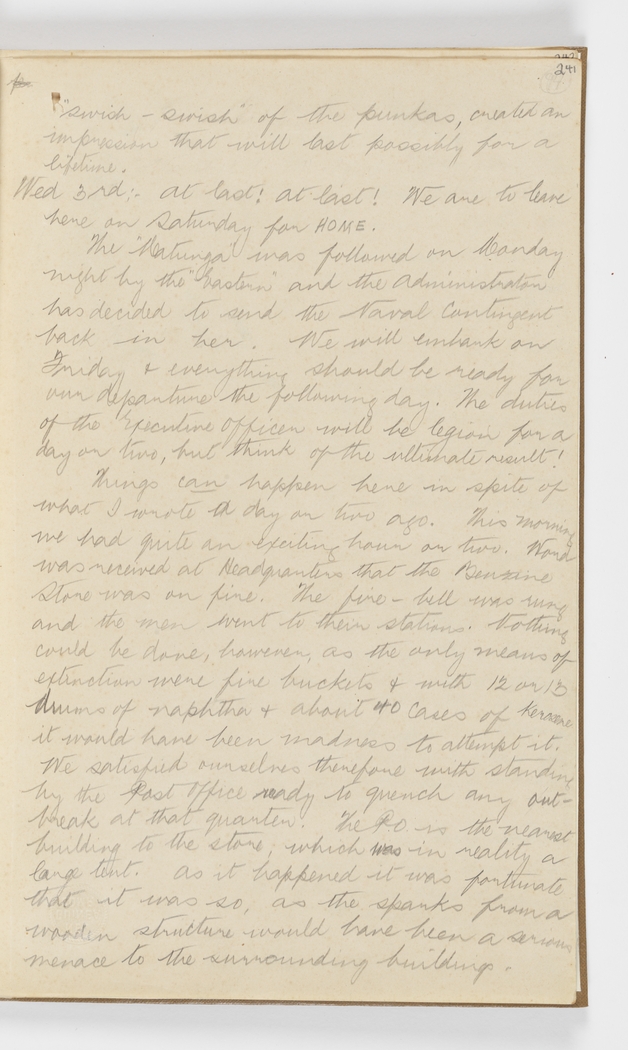 241
"swish - swish" of the punkas, created an
impression that will last possibly for a
lifetime.
Wed 3rd;- At last! At last! We are to leave
here on Saturday for HOME.
The "Matunga" was followed on Monday
night by the "Eastern" and the Administrator
has decided to send the Naval Contingent
back in her. We will embark on
Friday & everything should be ready for
our departure the following day. The duties
of the Executive Officer will be legion for a
day or two, but think of the ultimate result!
Things can happen here in spite of
what I wrote a day or two ago. This morning
we had quite an exciting hour or two. Word
was received at Headquarters that the Benzine
Store was on fire. The fire-bell was rung
and the men went to their stations. Nothing
could be done, however, as the only means of
extinction were fire buckets & with 12 or 13
drums of naphtha & about 40 cases of Kerosene
it would have been madness to attempt it.
We satisfied ourselves therefore with standing
by the Post Office ready to quench any out-
break at that quarter. The P.O. is the nearest
building to the store; which was in reality a
large tent. As it happened it was fortunate
that it was so, as the sparks from a
wooden structure would have been a serious
menace to the surrounding buildings.